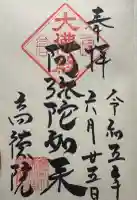 奉拝
令和五年
六月廿五日
阿弥陀如来
高徳院